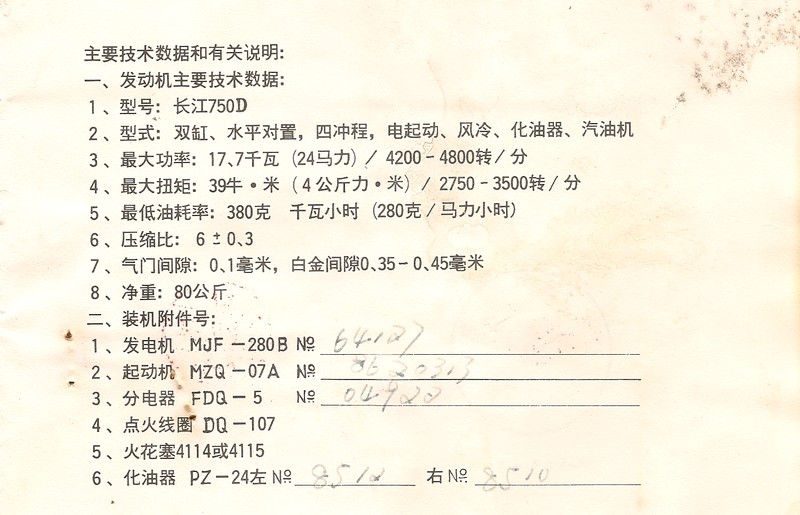 主要技术数据和有关说明:
一、发动机主要技术数据:
1、型号: 长江750D
2、型式: 双缸、水平对置, 四冲程, 电起动、风冷、化油器、汽油机
3、最大功率: 17、7千瓦 (24马力) / 4200-4800转/分
4、最大扭矩: 39牛·米 (4公斤力·米) / 2750-3500转/分
5、最低油耗率: 380克 千瓦小时 (280克/马力小时)
6、压缩比: 6±0、3
7、气门间隙: 0、1毫米, 白金间隙0、35-0、45毫米
8、净重: 80公斤
二、装机附件号:
1、发电机 MJF-280B №
2、起动机 MZQ-07A №
3、分电器 FDQ-5 № 04922
4、点火线圈 DQ-107
5、火花塞4114或4115
6、化油器 PZ-24左№ 8512 右№ 8510